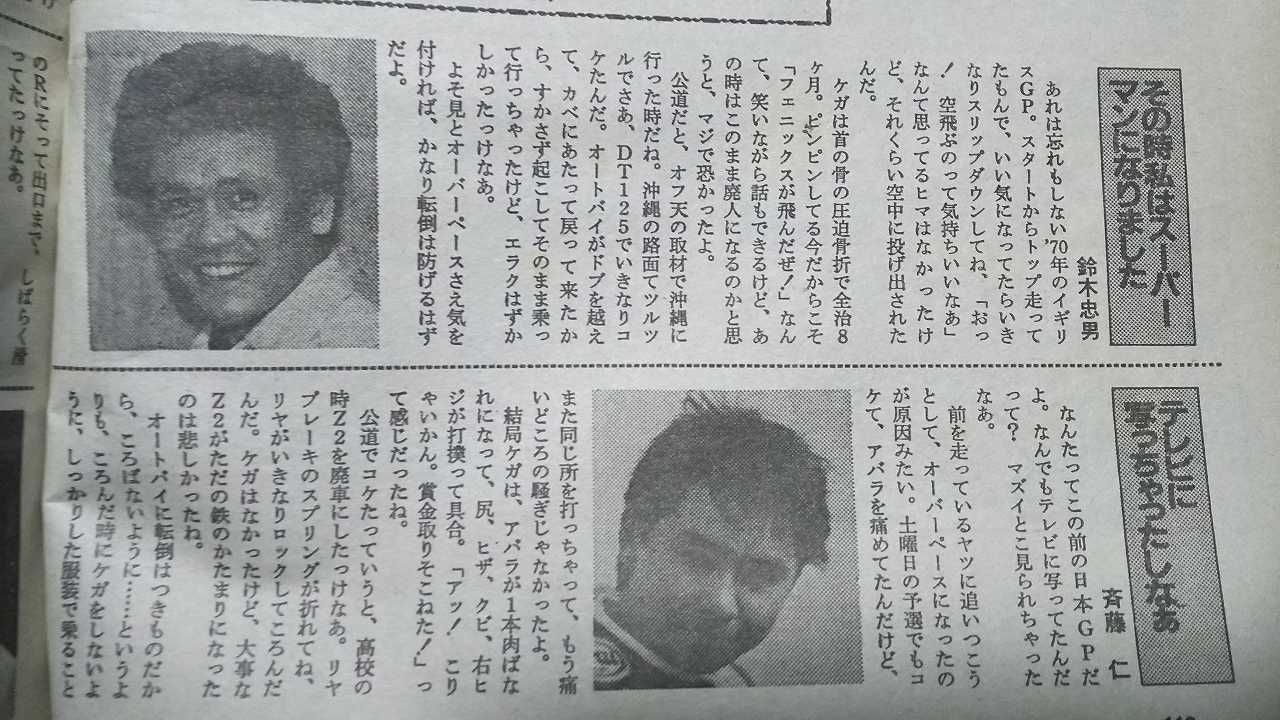 その時私はスーパー
マンになりました
鈴木忠男
あれは忘れもしない'70年のイギリ
スGP。スタートからトップ走って
たもんで、いい気になってたらいき
なりスリップダウンしてね、「おっ
！空飛ぶのって気持ちいいなあ」
なんて思ってるヒマはなかったけ
ど、それくらい空中に投げ出された
んだ。
ケガは首の骨の圧迫骨折で全治8
ヶ月。ピンピンしてる今だからこそ
「フェニックスが飛んだぜ！」なん
て、笑いながら話もできるけど、あ
の時はこのまま廃人になるのかと思
うと、マジで恐かったよ。
公道だと、オフ天の取材で沖縄に
行った時だね。沖縄の路面てツルツ
ルでさあ、DT125でいきなりコ
ケたんだ。オートバイがドブを越え
て、カベにあたって戻って来たか
ら、すかさず起こしてそのまま乗っ
て行っちゃったけど、エラクはずか
しかったっけなあ。
よそ見とオーバーペースさえ気を
付ければ、かなり転倒は防げるはず
だよ。
テレビに
写っちゃったしなあ
斉藤 仁
なんたってこの前の日本GPだ
よ。なんでもテレビに写ってたんだ
って？ マズイとこ見られちゃった
なあ。
前を走っているヤツに追いつこう
として、オーバーペースになったの
が原因みたい。土曜日の予選でもコ
ケて、アバラを痛めてたんだけど、
また同じ所を打っちゃって、もう痛
いどころの騒ぎじゃなかったよ。
結局ケガは、アバラが1本肉ばな
れになって、尻、ヒザ、クビ、右ヒ
ジが打撲って具合。「アッ！ こり
ゃいかん。賞金取りそこねた！」っ
て感じだったね。
公道でコケたっていうと、高校の
時Z2を廃車にしたっけなあ。リヤ
ブレーキのスプリングが折れてね、
リヤがいきなりロックしてころんだ
んだ。ケガはなかったけど、大事な
Z2がただの鉄のかたまりになった
のは悲しかったね。
オートバイに転倒はつきものだか
ら、ころばないように……というよ
りも、ころんだ時にケガをしないよ
うに、しっかりした服装で乗ること
のRにそって出口まで、しばらく滑
ってたっけなあ。